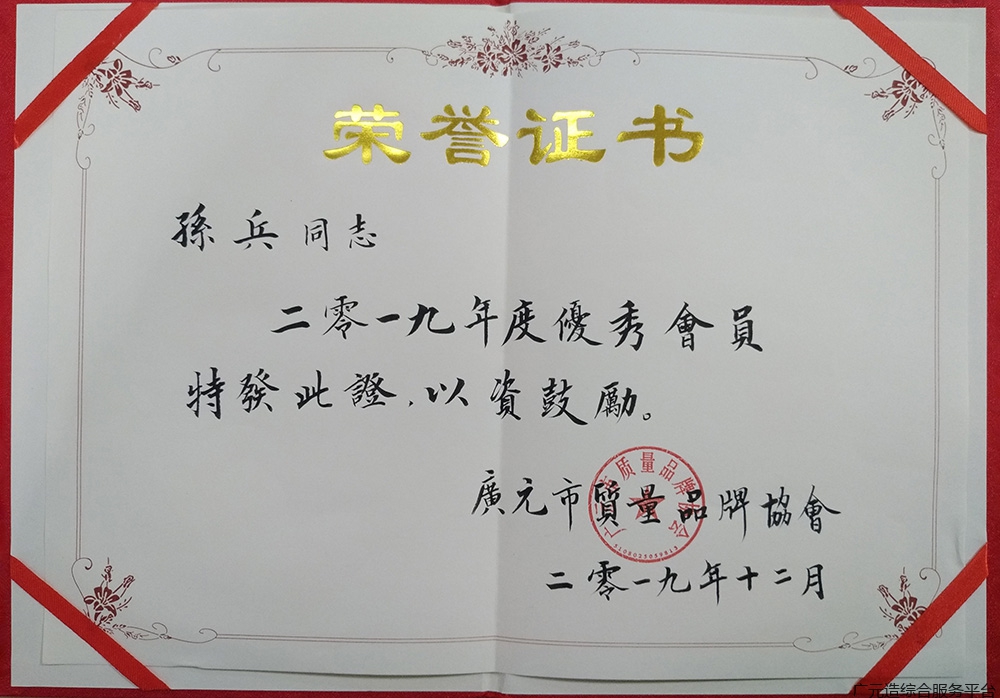 荣誉证书
孫兵同志
二零一九年度優秀會員
特發此證，以資鼓励。
廣元市質量品牌協會
二零一九年十二月
5108025059813
广元造综合服务平台